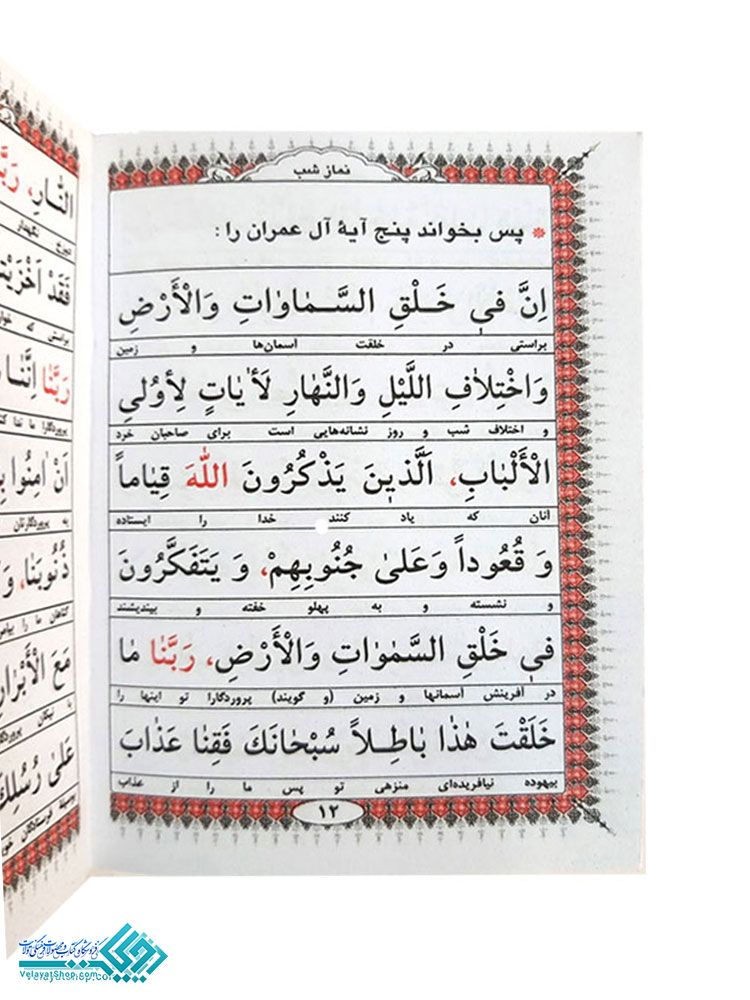 نماز شب
* پس بخواند پنج آیهٔ آل عمران را :
اِنَّ فىٖ خَـلْقِ السَّـمٰاوٰاتِ وَالْأَرْضِ
براستی در خلقت آسمان‌ها و زمین
وَاخْتِلاٰفِ اللَّيْلِ وَالنَّهٰارِ لَأٰيٰاتٍ لِأوُلىِ
و اختلاف شب و روز نشانه‌هایی است برای صاحبان خرد
الْأَلْبٰابِ، اَلَّذيٖنَ يَذْكُرُونَ اللّٰهَ قِيٰاماً
آنان که یاد کنند خدا را ایستاده
وَ قُعُوداً وَعَلىٰ جُنُوبِهِمْ، وَ يَتَفَكَّرُونَ
و نشسته و به پهلو خفته و بیندیشند
فىٖ خَلْقِ السَّمٰوٰاتِ وَالْأَرْضِ، رَبَّنٰا مٰا
در آفرینش آسمانها و زمین (و گویند) پروردگارا تو اینها را
خَلَقْتَ هٰذٰا بٰاطِـلاً سُبْحٰانَكَ فَقِنٰا عَذٰابَ
بیهوده نیافریده‌ای منزهی تو پس ما را از عذاب
۱۲
النّٰارِ، رَبَّ
دوزخ نگهدار
فَقَدْ اَخْزَيْتَ
براستی که خوار
رَبَّنٰا اِنَّنٰا
پروردگارا ما ندا
اَنْ اٰمِنُوا بِ
به پروردگارتان
ذُنُوبَنٰا، وَ
گناهان ما را بیامر
مَعَ الْأَبْرٰارِ
با نیکان پرورد
عَلىٰ رُسُلِكَ
بوسیله فرستادگان خود
فروشگاه کتاب و محصولات فرهنگی ولایت
VelayatShop.com
Velayatshop.com